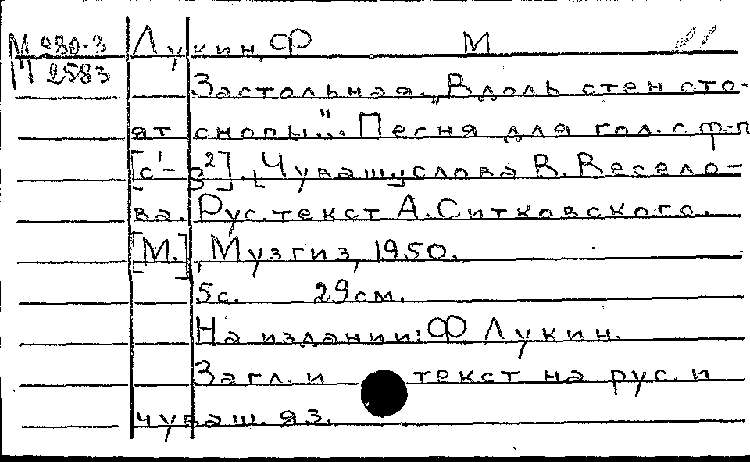 М 280-3 Лукин, Ф М
М 2583
Застольная. „Вдоль стен сто-
ят снопы"... Песня для гол. с ф.-п.
[c¹-g²]. [Чуваш.] слова В. Весело-
ва. Рус. текст А. Ситковского.
[М.], Музгиз, 1950.
5с. 29см.
На издании: Ф Лукин.
Загл. и текст на рус. и
чуваш. яз.